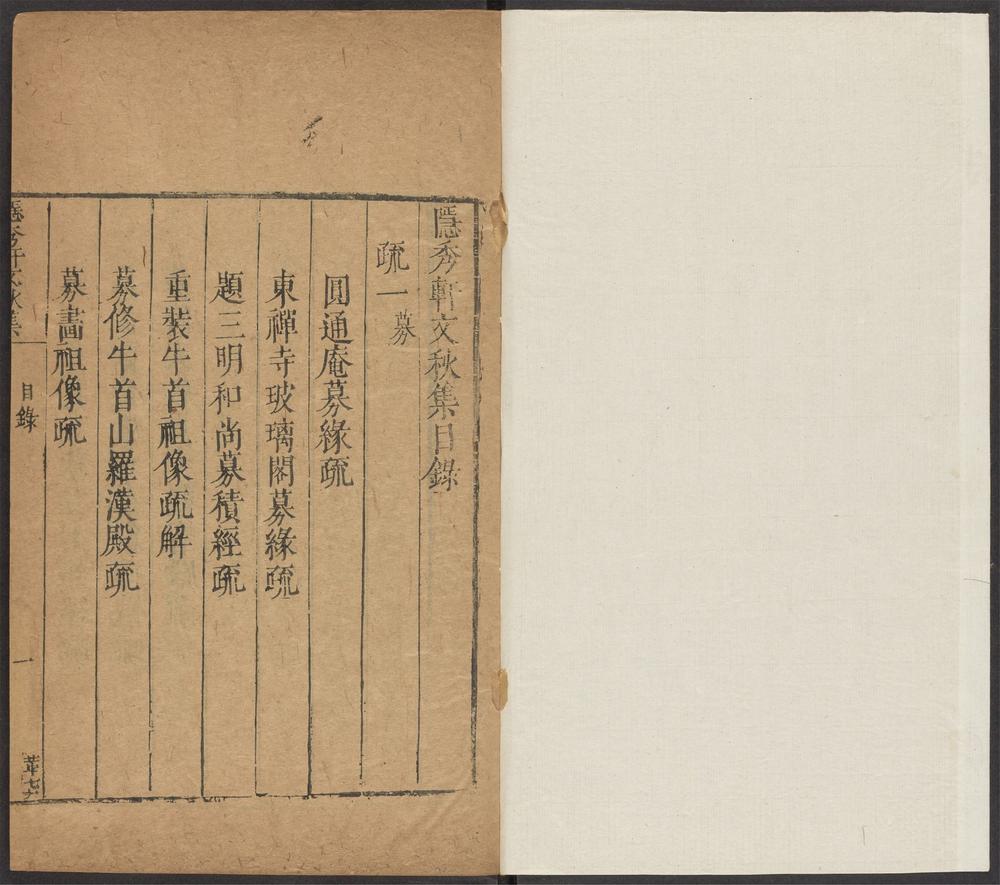 隱秀軒文秋集目錄
疏一募
圓通庵募緣疏
東禪寺玻璃閣募緣疏
題三明和尚募積經疏
重裝牛首祖像疏解
募修牛首山羅漢殿疏
募畫祖像疏
隱秀軒文秋集
目錄
一